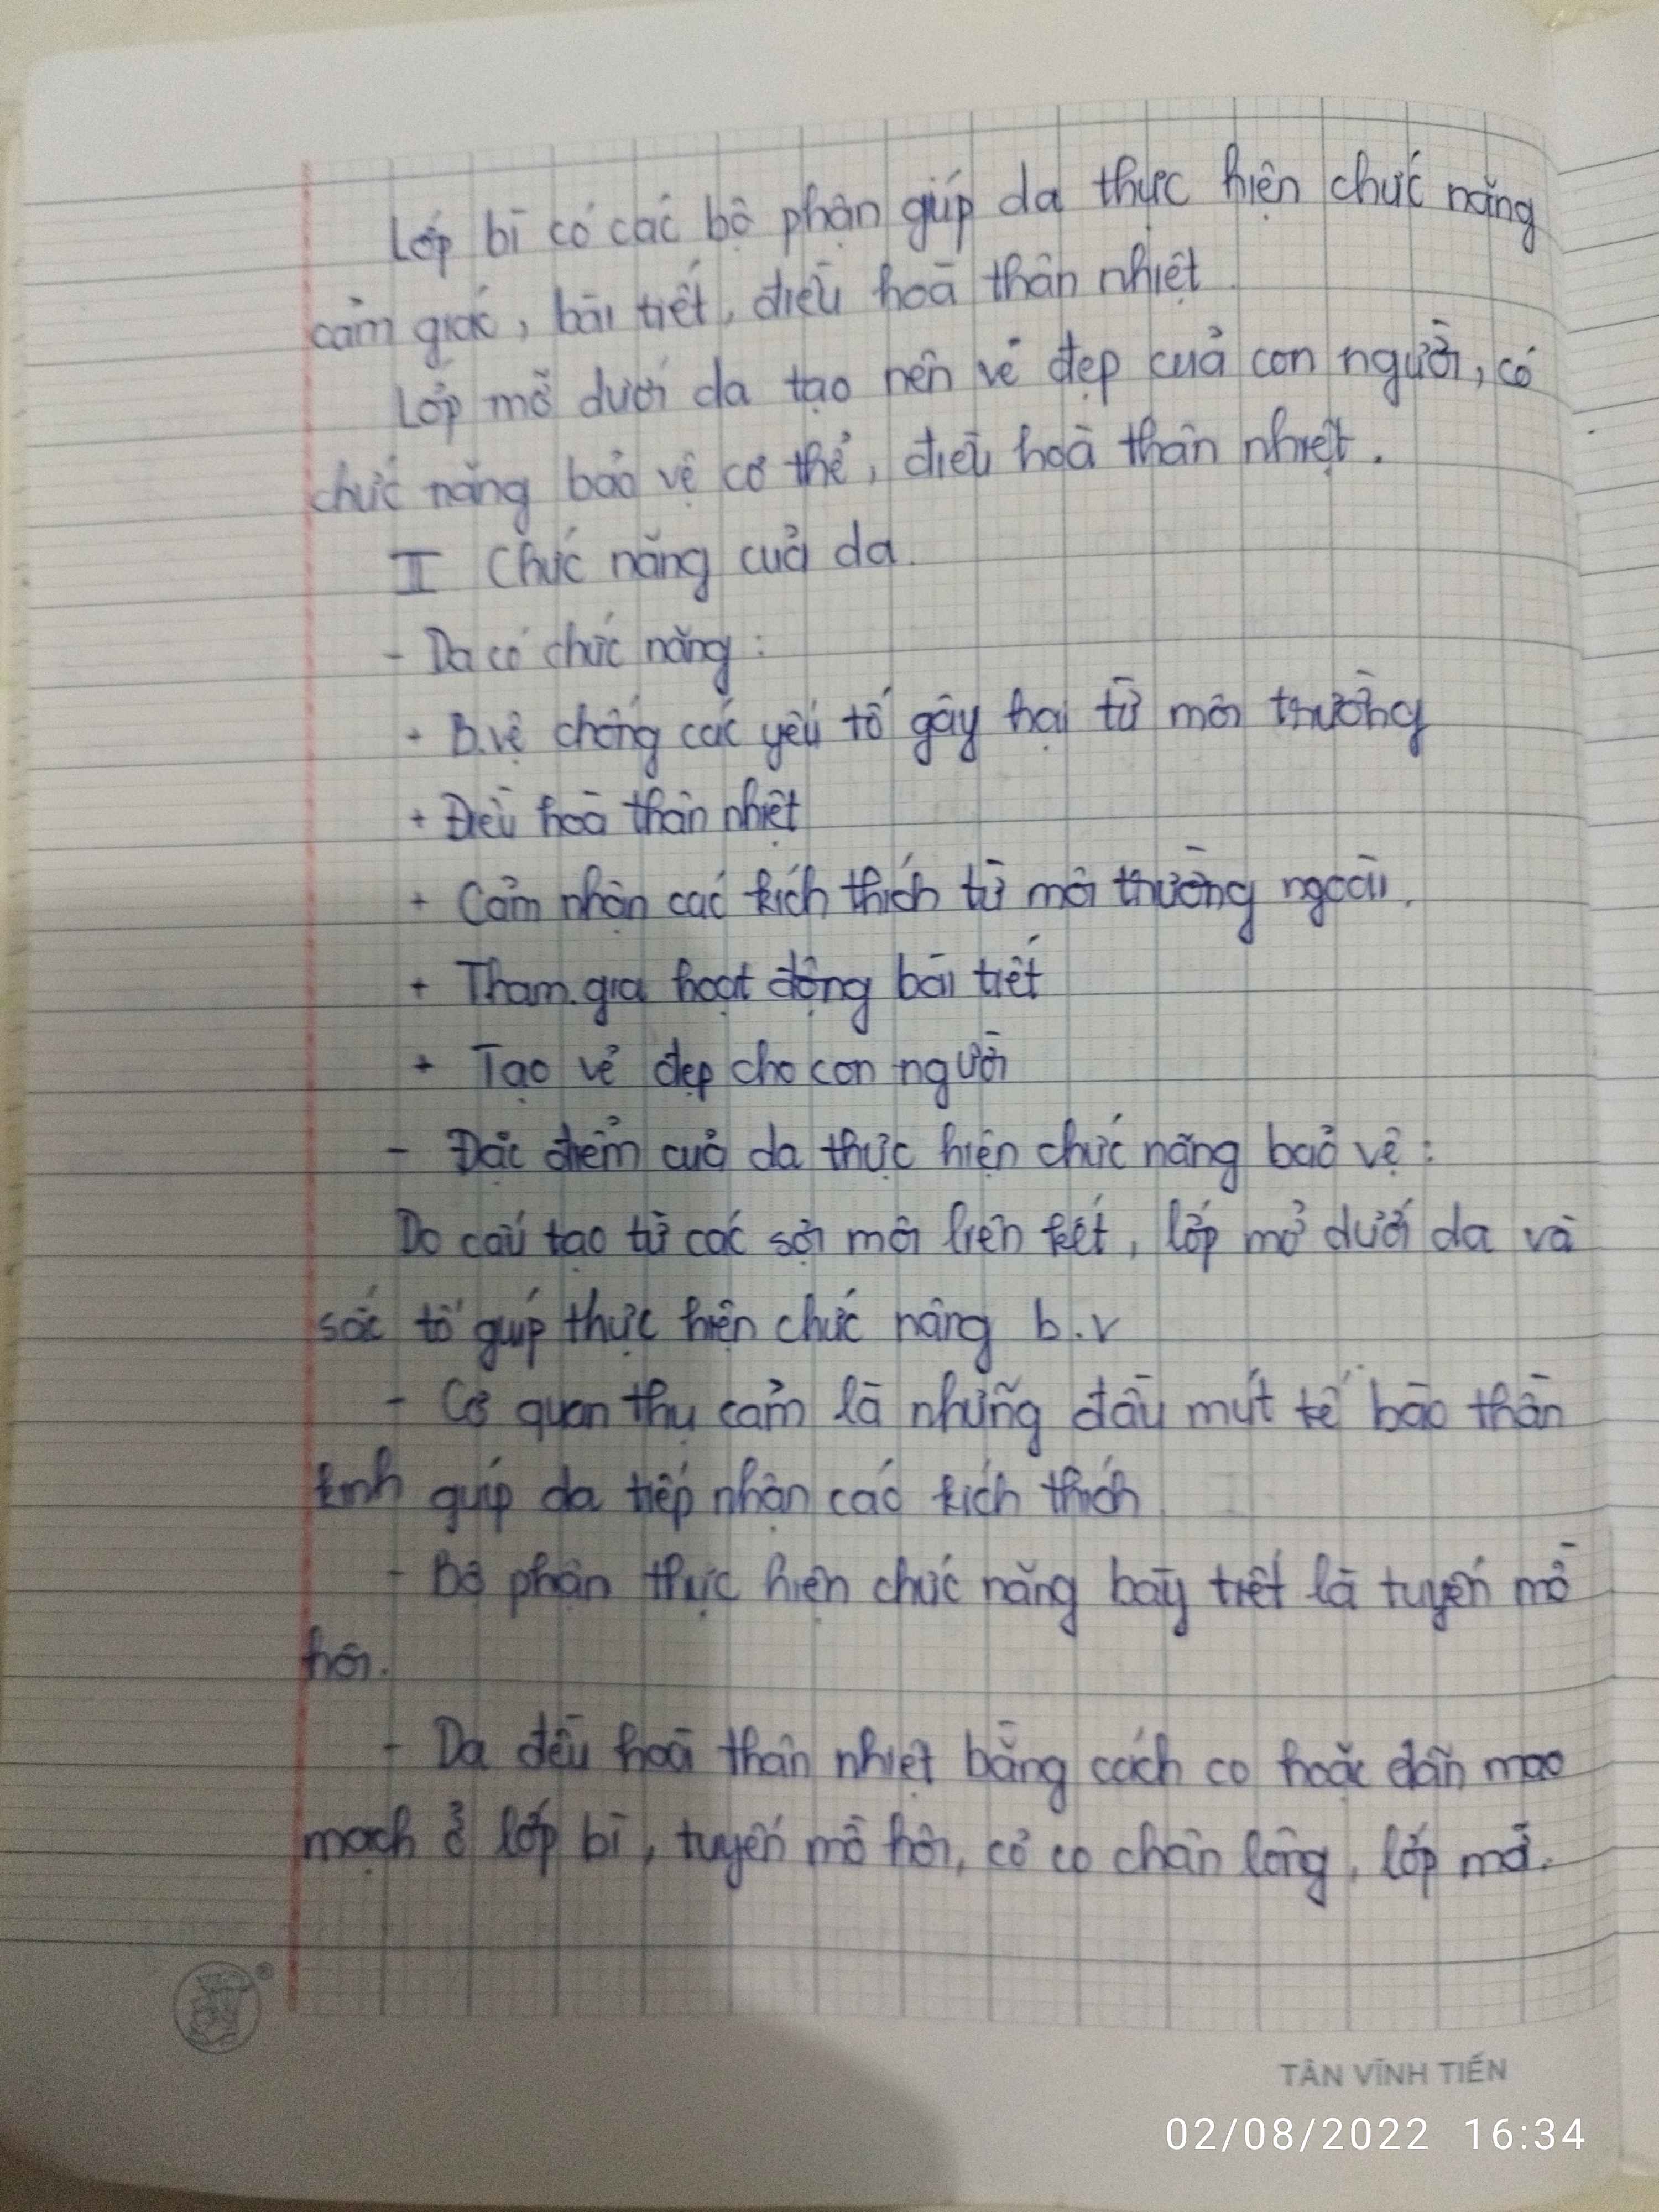 Lớp bì có các bộ phận giúp da thực hiện chức năng
cảm giác, bài tiết, điều hoà thân nhiệt.
Lớp mỡ dưới da tạo nên vẻ đẹp của con người, có
chức năng bảo vệ cơ thể, điều hoà thân nhiệt.
II Chức năng của da.
- Da có chức năng :
+ B.vệ chống các yếu tố gây hại từ môi trường
+ Điều hoà thân nhiệt
+ Cảm nhận các kích thích từ môi trường ngoài.
+ Tham gia hoạt động bài tiết
+ Tạo vẻ đẹp cho con người
- Đặc điểm của da thực hiện chức năng bảo vệ :
Do cấu tạo từ các sợi mô liên kết, lớp mỡ dưới da và
sắc tố giúp thực hiện chức năng b.v
- Cơ quan thụ cảm là những đầu mút tế bào thần
kinh giúp da tiếp nhận các kích thích.
- Bộ phận thực hiện chức năng bày tiết là tuyến mồ
hôi.
- Da đều hoà thân nhiệt bằng cách co hoặc dãn mao
mạch ở lớp bì, tuyến mồ hôi, cơ co chân lông, lớp mỡ.
TÂN VĨNH TIẾN
02/08/2022 16:34